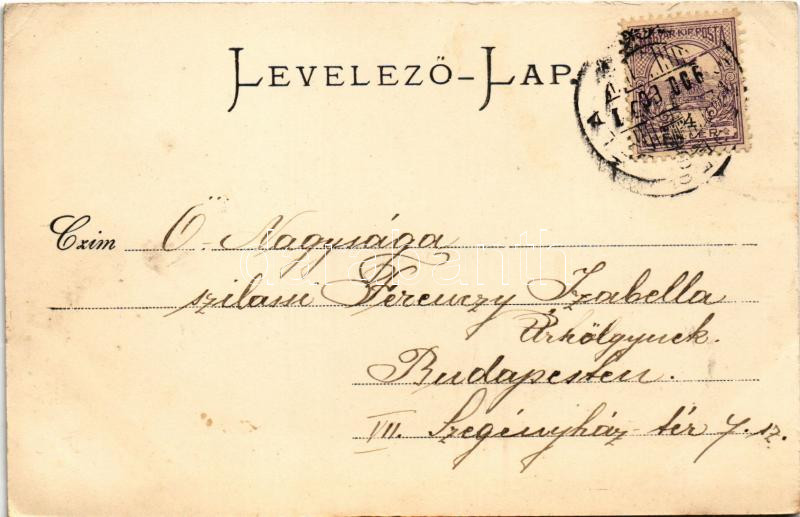 LEVELEZŐ-LAP.
MAGYAR KIR. POSTA
903 DEC 6
Czim Ő-Nagysága
szilasi Ferenczy Izabella
Úrhölgynek.
Budapesten.
VII. Szegényház-tér 7. sz.